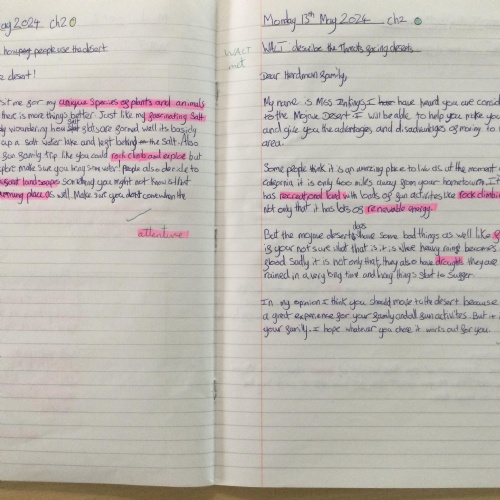 ay 2024 ch2
how people use the desert
desert!
st me for my unique species of plants and animals
there is more things better. Just like my fascinating salt
wondering how salt slats are formed well its basicly
up a salt water lake and left the salt. Also
fun family trip like you could rock climb and explore but
make sure you bring some water people also decide to
landscapes something you might not know is that
place as well. Make sure you dont come when the
attention
WALT
met
Monday 13th May 2024 ch2
WALT describe the threats facing deserts
Dear Herdman family,
My name is Miss I have heard you are consid
to the Mojave Desert I will be able to help you make you
and give you the advantages, and disadvantages of moving to
area.
Some people think it is an amazing place to live as at the moment
california it is only 400 miles away from your hometown. It
has recreational land with loads of fun activities like rock climbin
not only that it has lots of renewable energy.
But the mojave deserts does have some bad things as well like
if your not sure what that is, it is where becomes
good sadly it is not only that, they also have droughts they are
rained in a very long time and living things start to suffer.
In my opinion I think you should move to the desert because
a great experience for your family and all fun activites. But it
your family. I hope whatever you chose it works out for you